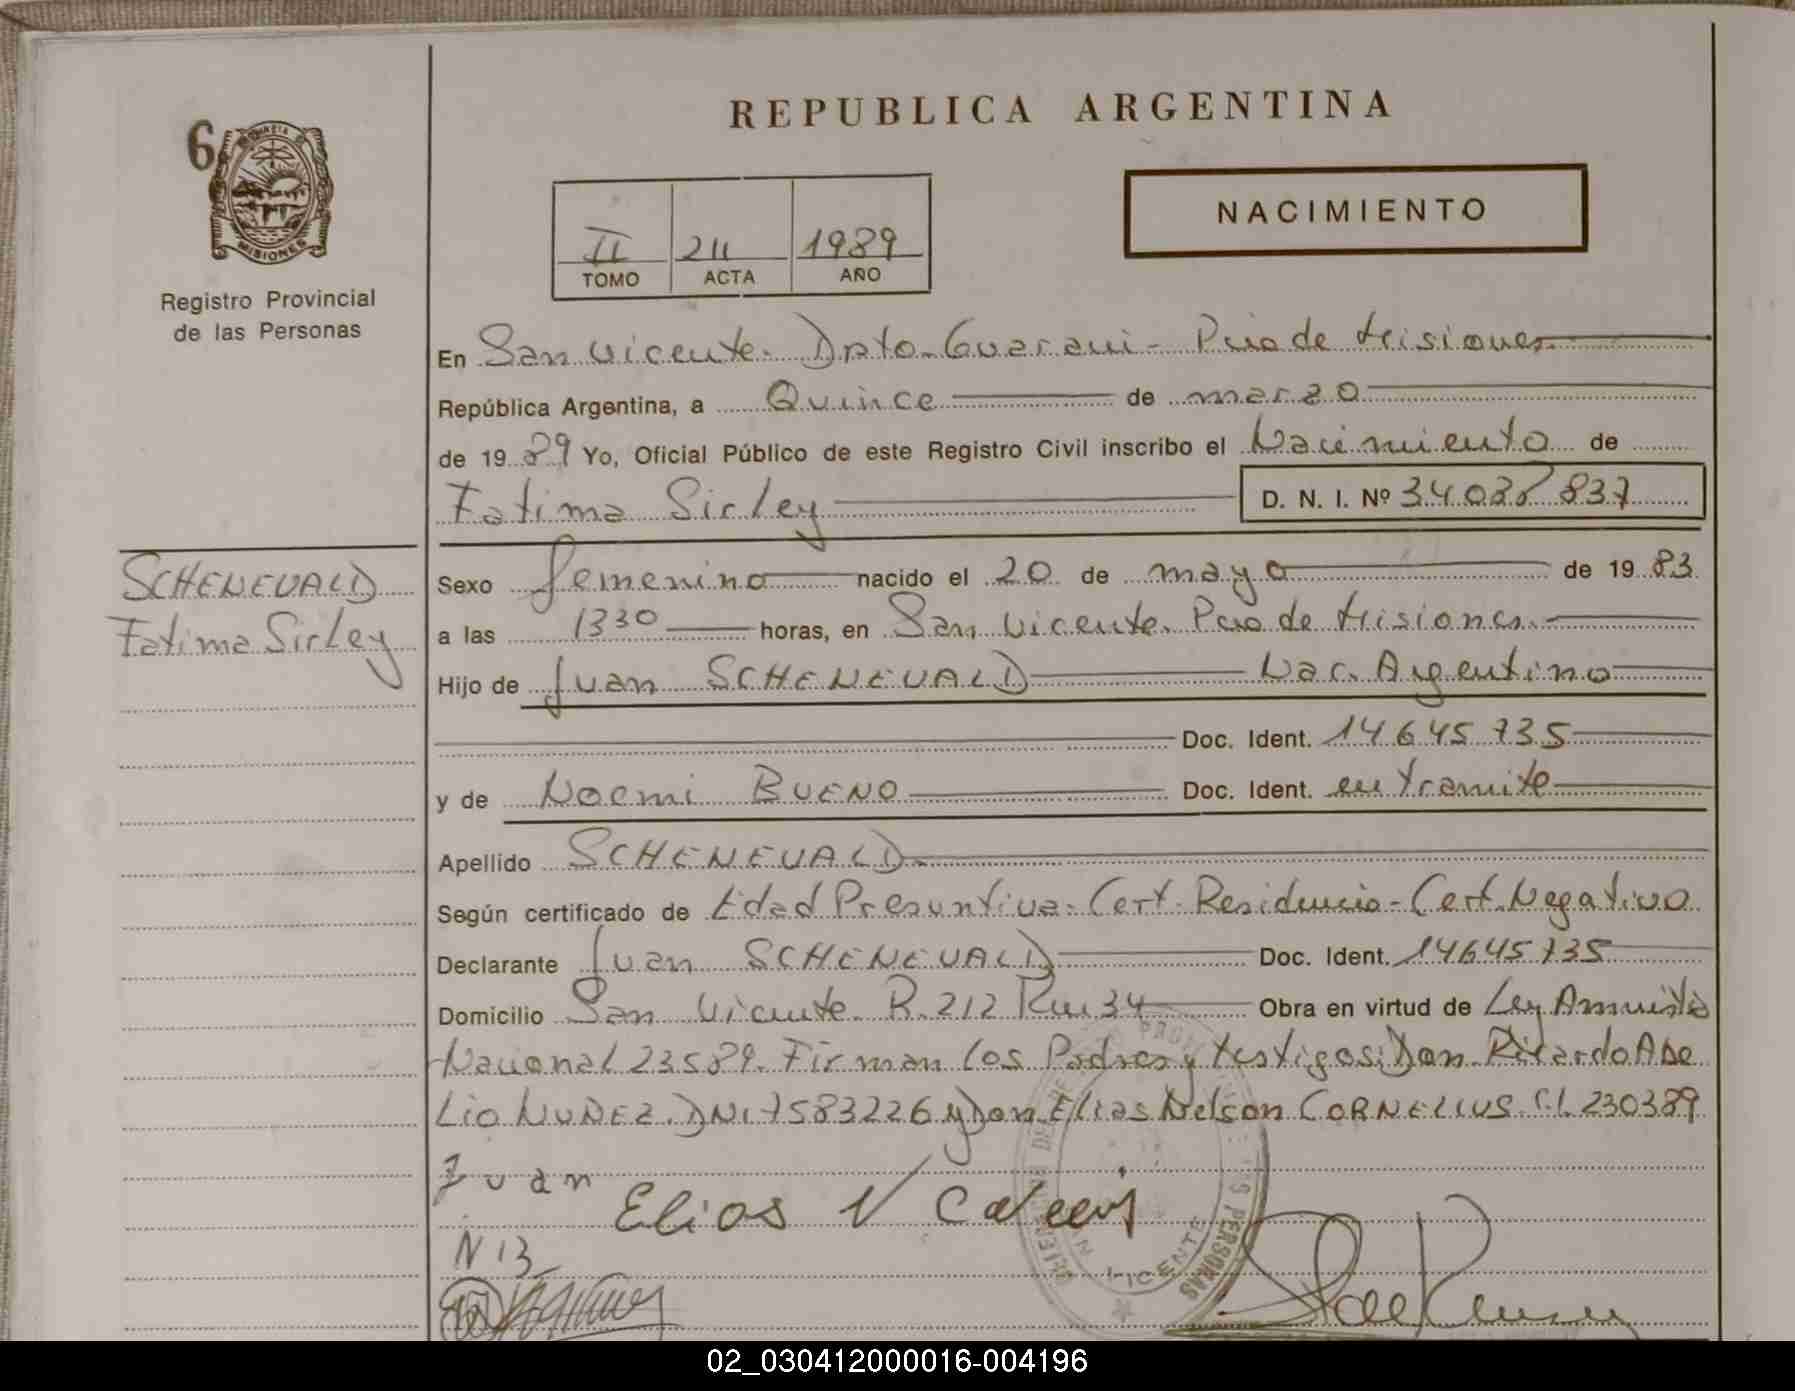 REPUBLICA ARGENTINA
6
PROVINCIA DE
MISIONES
Registro Provincial
de las Personas
NACIMIENTO
II 211 1989
TOMO ACTA AÑO
En San Vicente. Dpto. Guarani - Pcia de Misiones.
República Argentina, a Quince de marzo
de 1989 Yo, Oficial Público de este Registro Civil inscribo el Nacimiento de
Fatima Sirley D. N. I. Nº 34.028 837
SCHENEVALD
Fatima Sirley
Sexo femenino nacido el 20 de mayo de 1983
a las 1330 horas, en San Vicente. Pcia de Misiones.
Hijo de Juan SCHENEVALD Nac. Argentino
Doc. Ident. 14645735
y de Noemi BUENO Doc. Ident. en tramite
Apellido SCHENEVALD
Según certificado de Edad Presuntiva - Cert. Residencia - Cert. Negativo
Declarante Juan SCHENEVALD Doc. Ident. 14645735
Domicilio San Vicente. R. 212 Km 34 Obra en virtud de Ley Amnistia
Nacional 23589. Firman los Padres y testigos: Don Ricardo Abe
lio NUÑEZ. DNI 7583226 y Don Elias Nelson CORNELIUS. C.I. 230389
Juan
Elios N
N B
VICENTE
PERSONAS
02_030412000016-004196